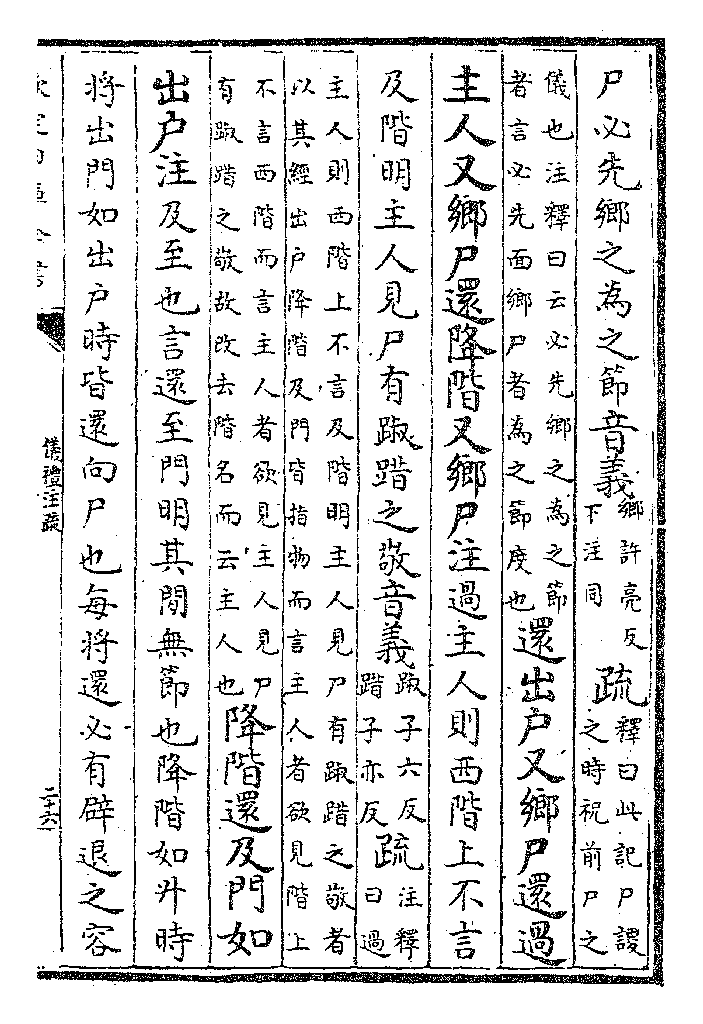 尸必先鄉之為之節音義鄉許亮反下注同疏釋曰此記尸謖之時祝前尸之
儀也注釋曰云必先鄉之為之節者言必先面鄉尸者為之節度也還出户又鄉尸還過
主人又鄉尸還降階又鄉尸注過主人則西階上不言
及階明主人見尸有踧踖之敬音義踧子六反踖子亦反疏注釋曰過
主人則西階上不言及階明主人見尸有踧踖之敬者以其經出户降階及門皆指物而言主人者欲見階上
不言西階而言主人者欲見主人見尸有踧踖之敬故改去階名而云主人也降階還及門如
出户注及至也言還至門明其間無節也降階如升時
將出門如出户時皆還向尸也每將還必有辟退之容
儀禮注疏
二十六